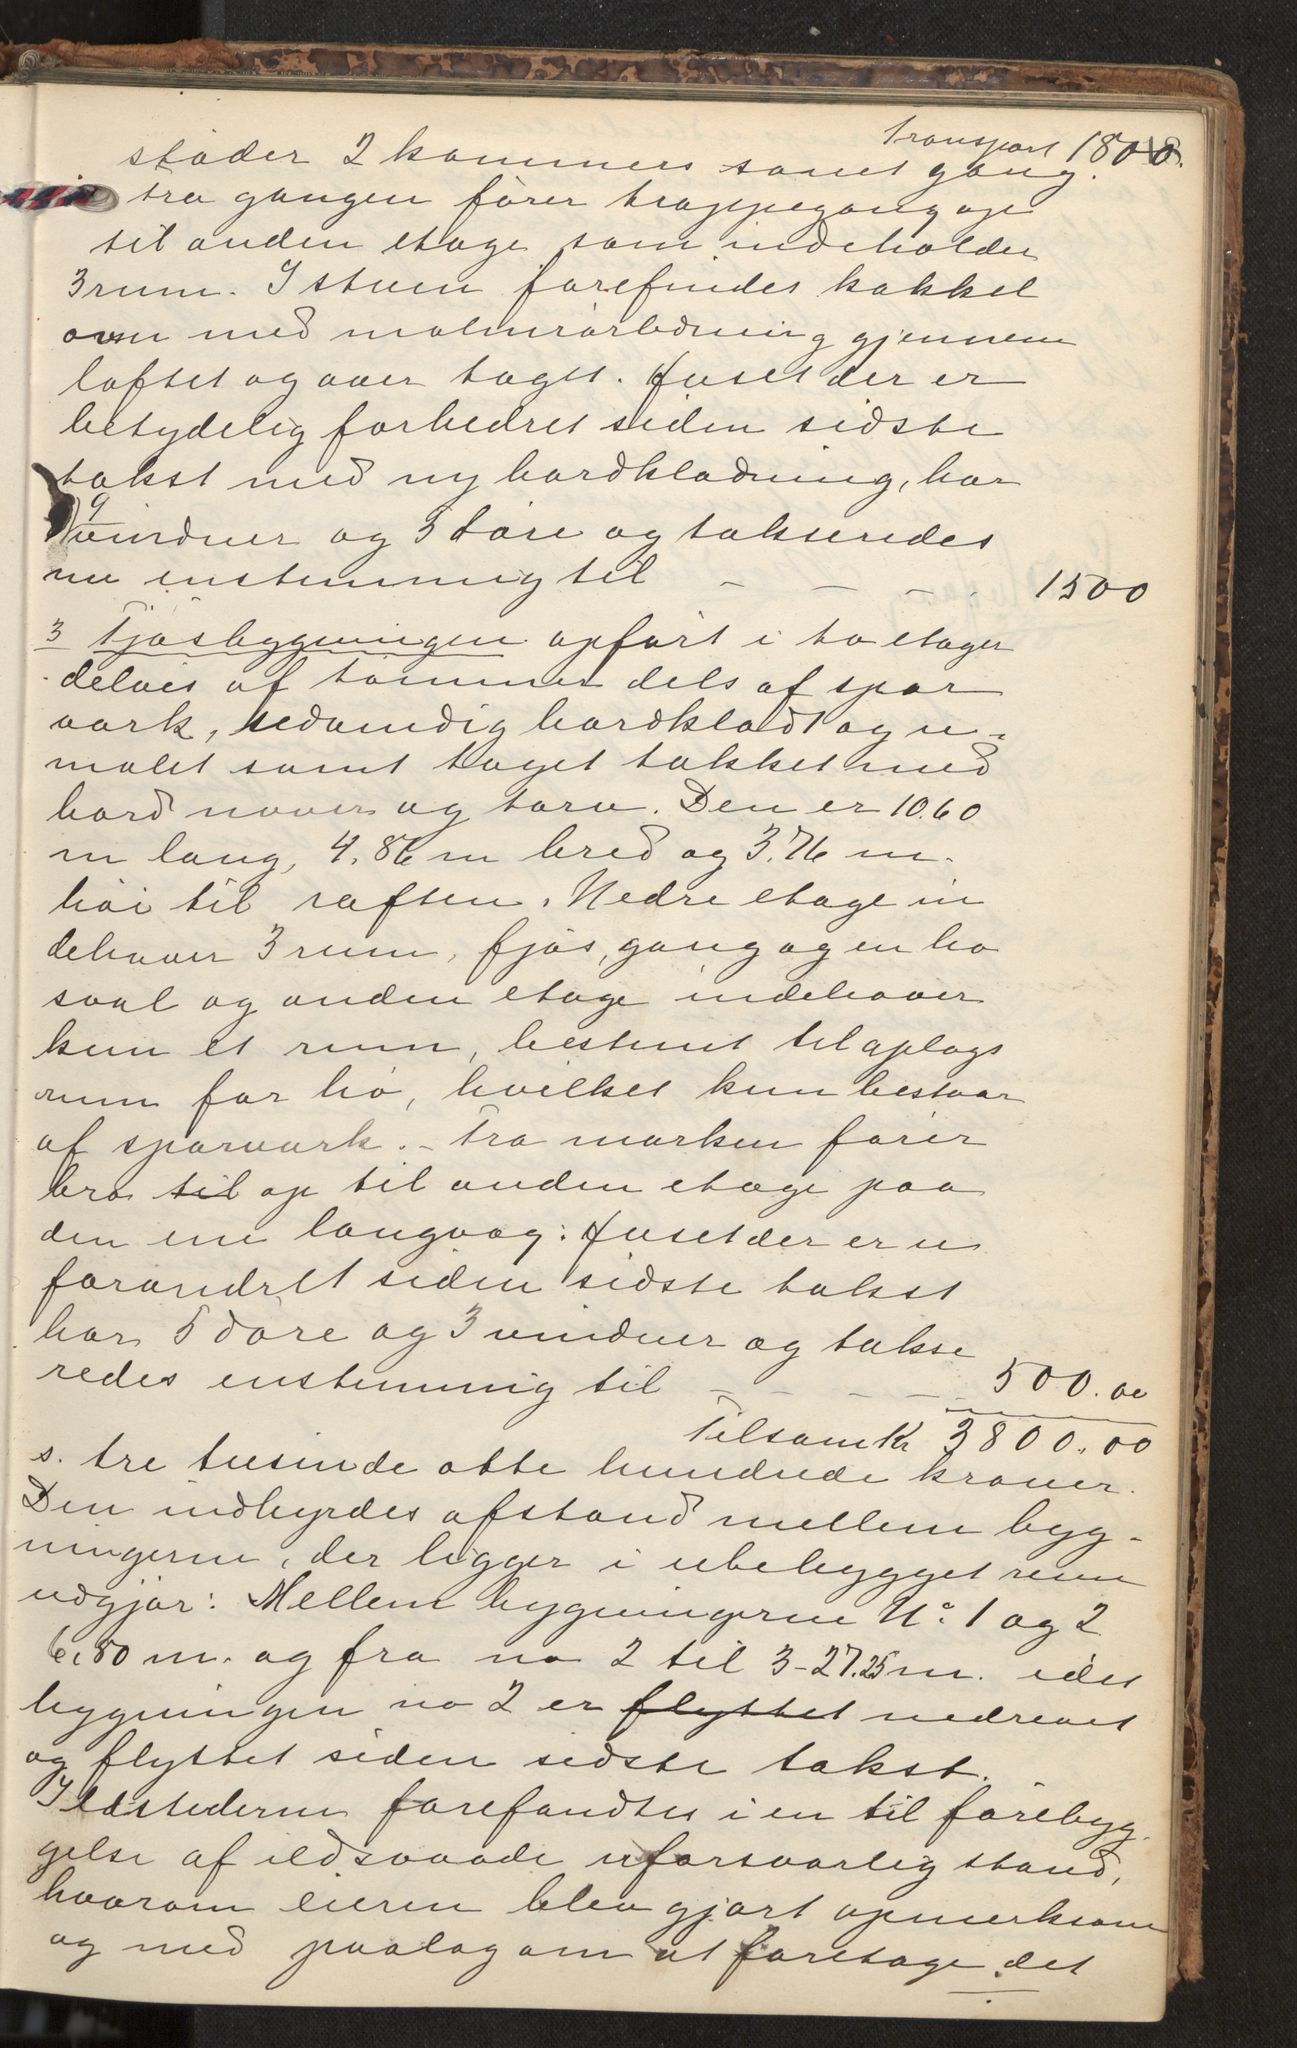 Transport 1800.
støder 2 kammers samt gang.
Fra gangen fører trappegang op
til anden etage som indeholder
3 rum. I stuen forefindes kakkel
ovn med malmrørledning gjennem
loftet og over taget. Huset der er
betydelig forbedret siden sidste
takst med ny bordklædning, har
9 vinduer og 3 døre og takseredes
nu enstemmig til - - - - 1500
3 Fjøsbygningen opført i to etager
delvis af tømmer dels af spær
værk, udvendig bordklædt og u-
malet samt taget tækket med
bord næver og torv. Den er 10.60
m lang, 4.86 m bred og 3.76 m.
høi til raften. Nedre etage in
dehaver 3 rum, fjøs, gang og en ho
sval og anden etage indehaver
kun et rum, bestemt til oplags
rum for hø, hvilket kun bestaar
af spærværk. - Fra marken fører
bro til op til anden etage paa
den ene langvæg. Huset der er u
forandret siden sidste takst
har 5 døre og 3 vinduer og takse
redes enstemmig til - - - - 500.00
Tilsam Kr 3800.00
s. tre tusinde otte hundrede kroner.
Den indbyrdes afstand mellem byg-
ningerne, der ligger i ubebygget rum
udgjør: Mellem bygningerne No. 1 og 2
6.80 m. og fra no 2 til 3 - 27.25 m. idet
bygningen no 2 er flyttet nedrevet
og flyttet siden sidste takst.
Ildstederne forefandtes i en til forebyg
gelse af ildsvaade uforsvarlig stand,
hvorom eieren blev gjort opmerksom
og med paalæg om at foretage det